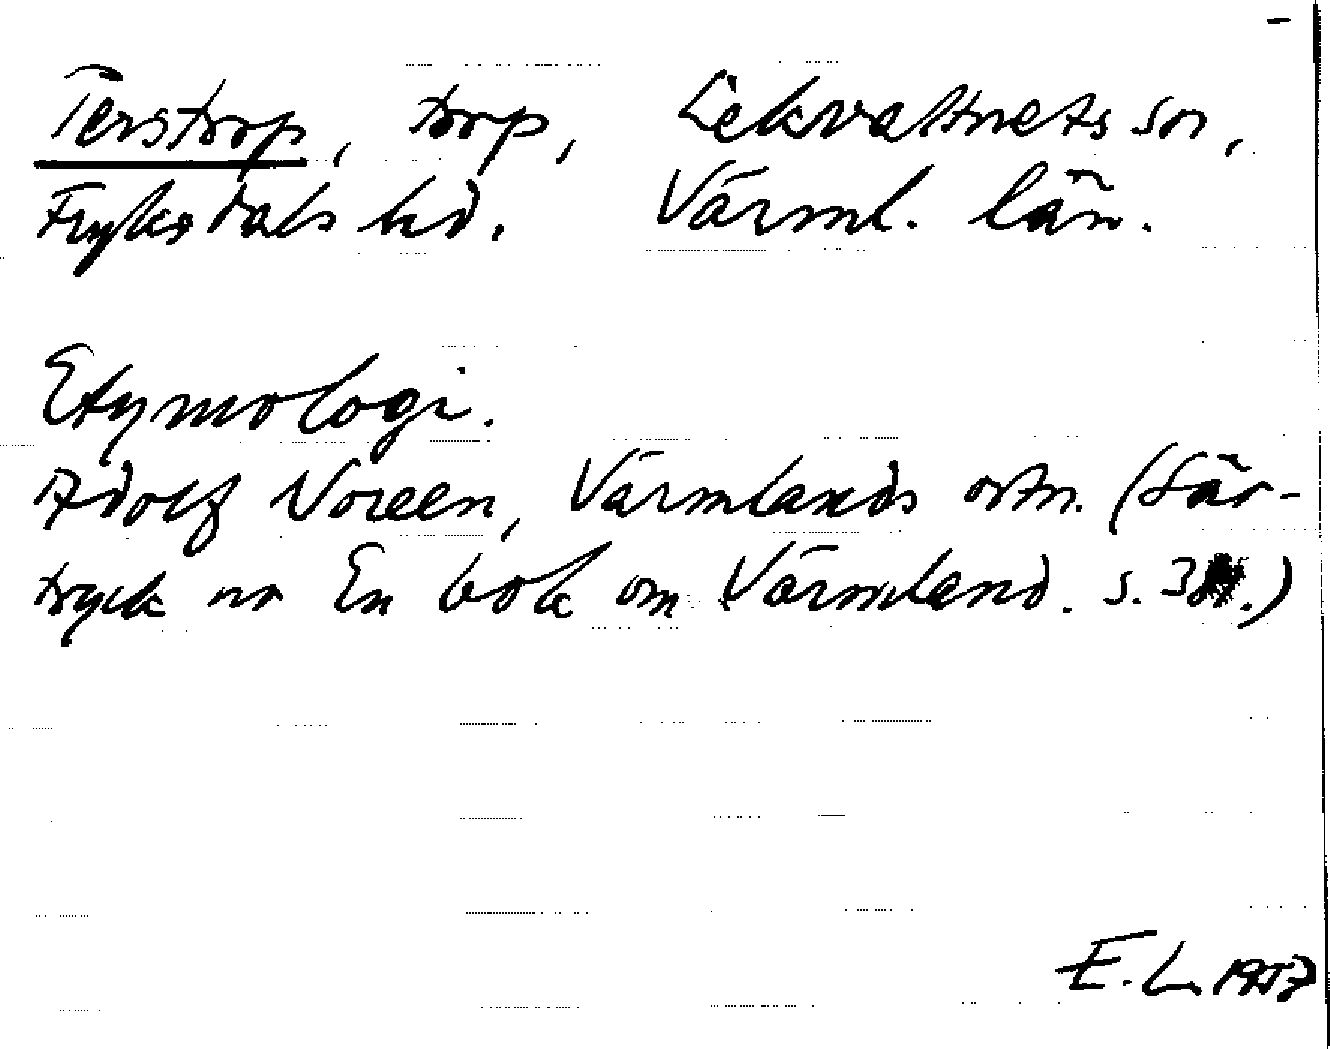 Terstorp, torp, Lekvattnets sn,
Fryksdals hd. Värml. län.
Etymologi.
Adolf Noreen, Värmlands ortn. (Sär-
tryck ur En bok om Värmland. s.
E. L. 1957